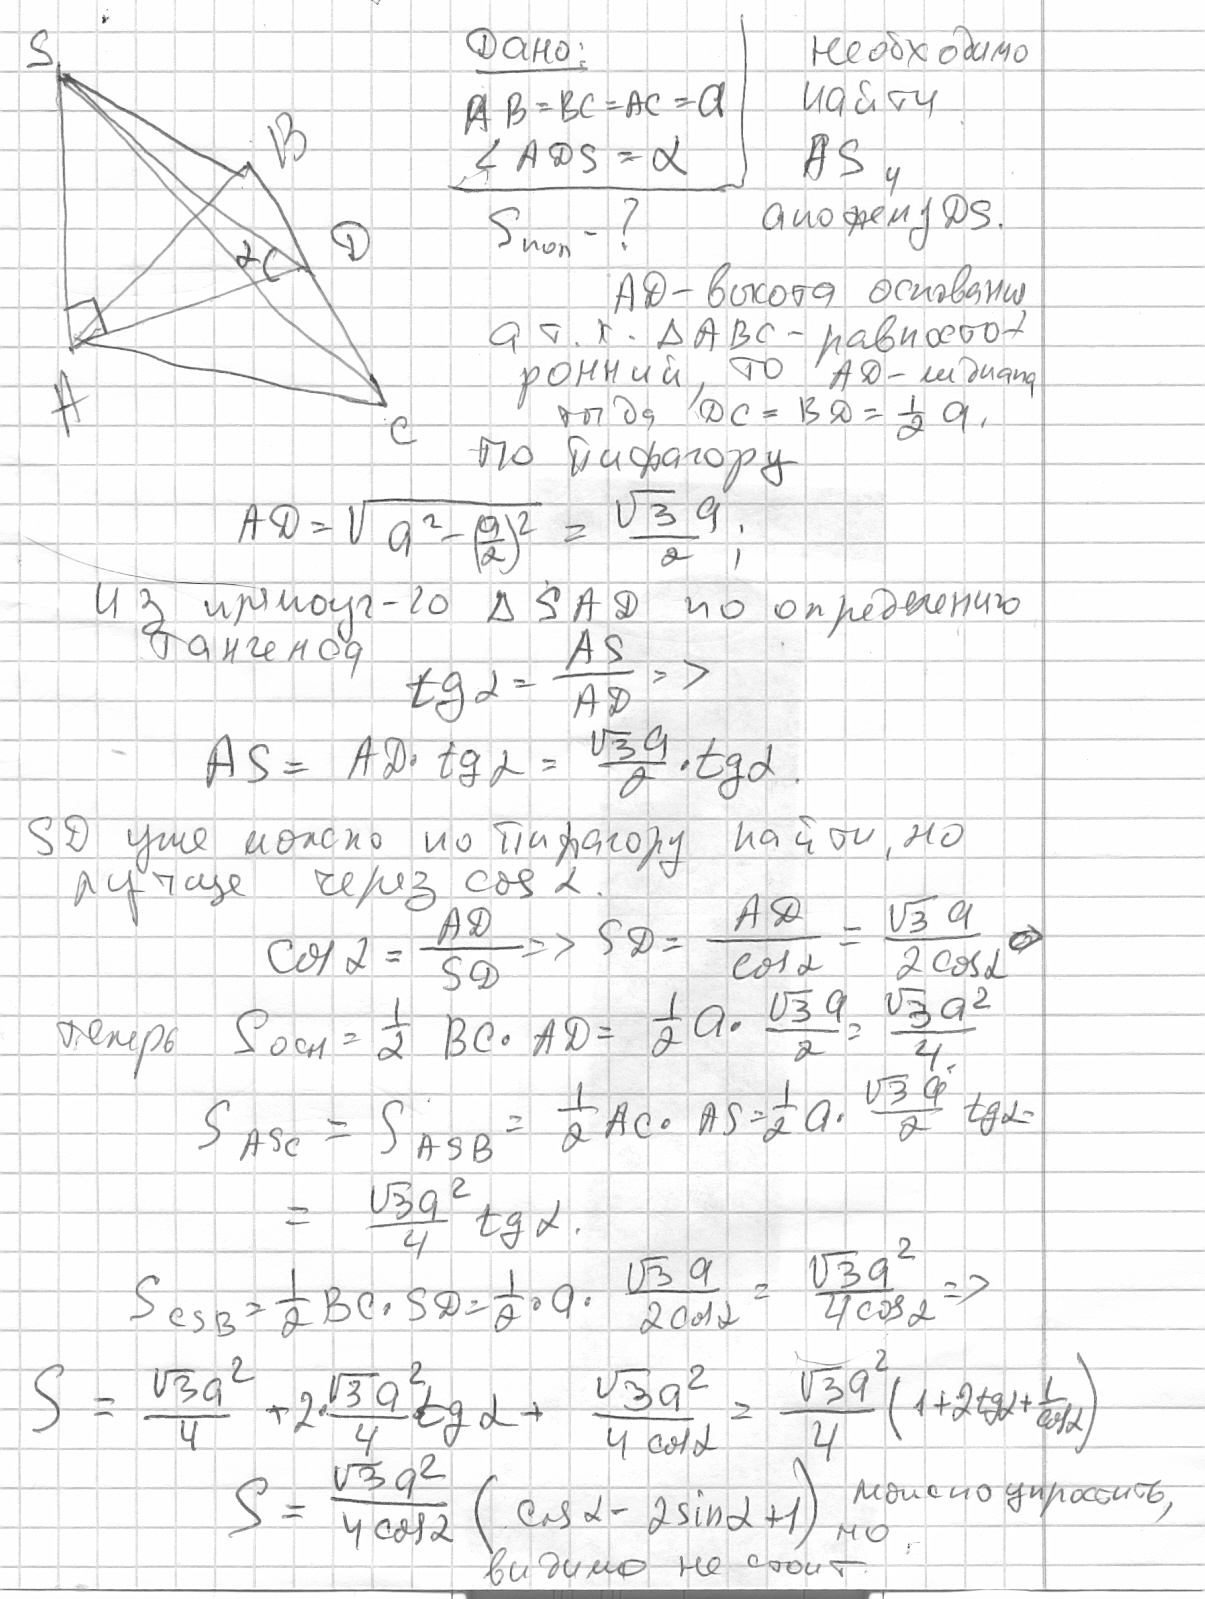 S
B
D
α
A
C
Дано:
AB=BC=AC=a
∠ADS=α
Sпол-?
Необходимо
найти
AS и
апофему DS.
AD-высота основания
а т.к. ΔABC-равносто-
ронний, то AD-медиана
тогда DC=BD=1/2 a.
По Пифагору
AD=√(a²-(a/2)²) = √3a/2;
из прямоуг-го ΔSAD по определению
тангенса
tgα=AS/AD =>
AS= AD·tgα=√3a/2·tgα.
SD уже можно по Пифагору найти, но
лучше через cosα.
cosα=AD/SD => SD=AD/cosα=√3a/2cosα
теперь Sосн=1/2 BC·AD=1/2 a·√3a/2=√3a²/4
S ASC = S ASB = 1/2 AC·AS=1/2 a·√3a/2 tgα=
= √3a²/4 tgα.
S CSB=1/2 BC·SD=1/2·a·√3a/2cosα=√3a²/4cosα =>
S = √3a²/4 +2·√3a²/4 tgα+ √3a²/4cosα = √3a²/4 (1+2tgα+1/cosα)
S = √3a²/4cosα (cosα-2sinα+1) можно упростить,
но
видимо не стоит.